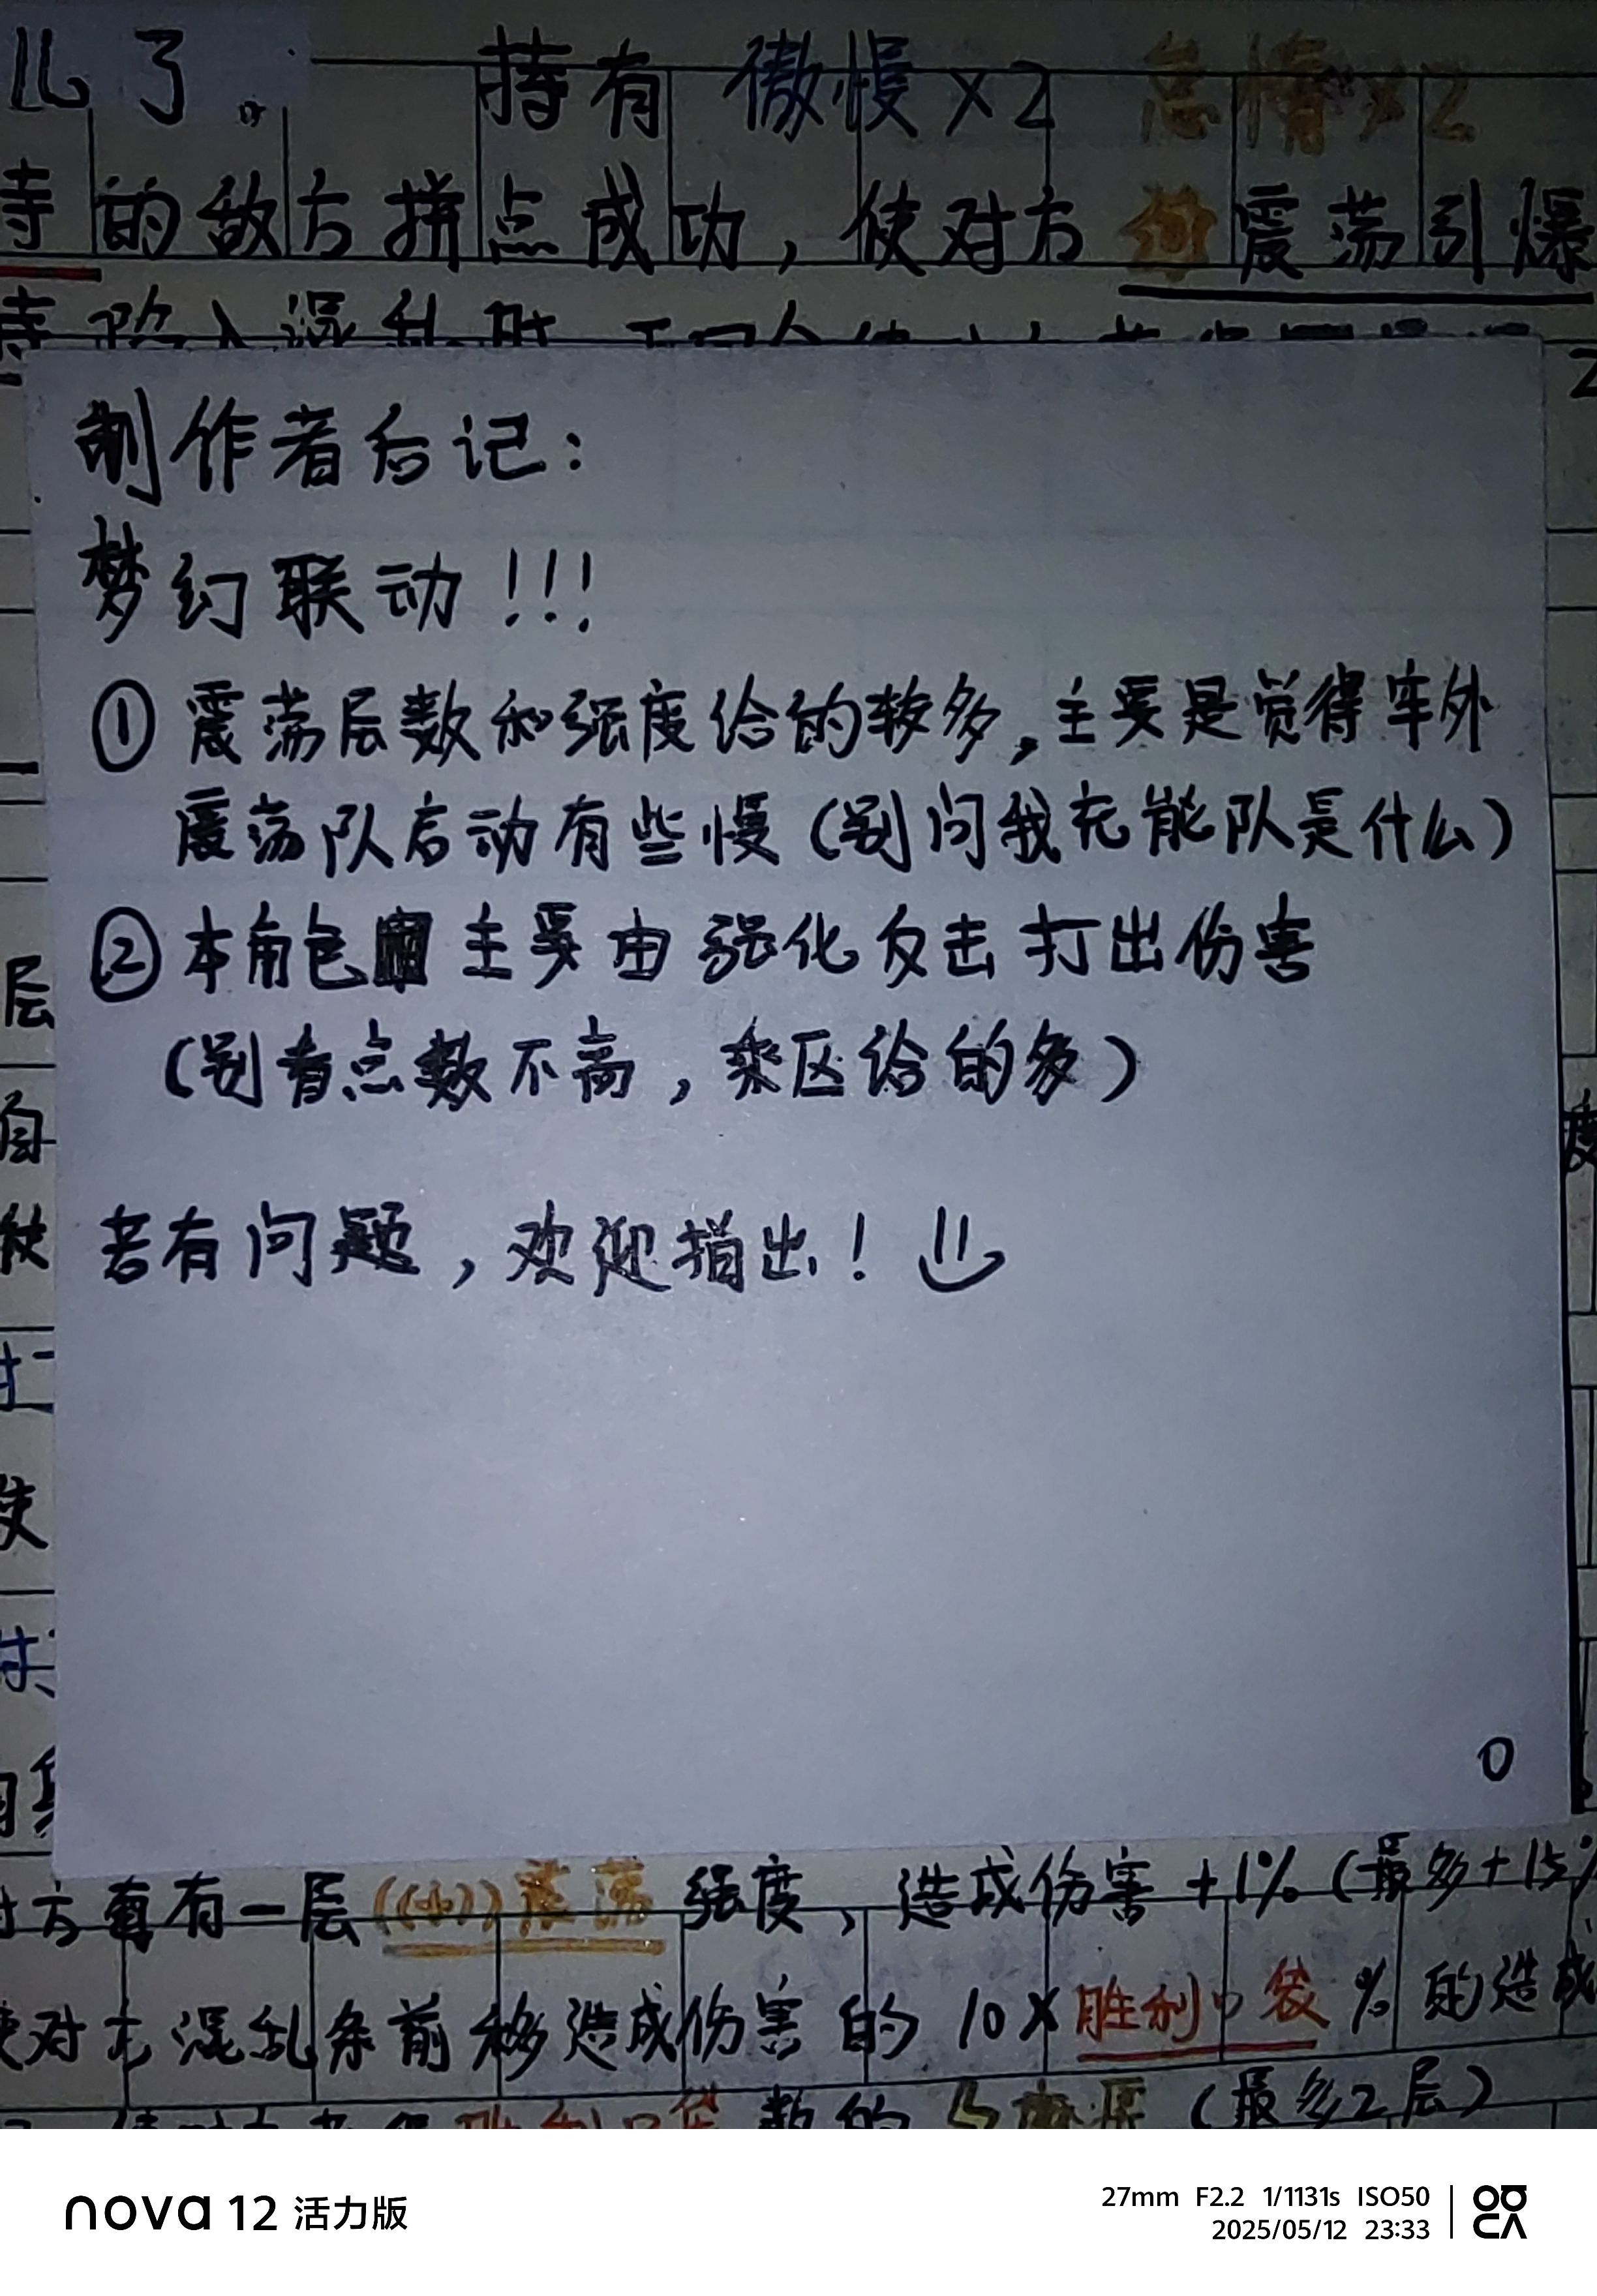 了。 持有 傲慢×2 怠惰×2
的敌方拼点成功，使对方 震荡引爆
陷入混乱时
2
制作者后记：
梦幻联动！！！
① 震荡层数和强度给的较多，主要是觉得牢外
震荡队启动有些慢（别问我充能队是什么）
层
② 本角色 主要由强化反击打出伤害
（别看点数不高，乘区给的多）
自 度
使 若有问题，欢迎指出！
0
对方每有一层 震荡 强度，造成伤害+1%（最多+15%
对方混乱条前移造成伤害的10×胜利口袋%的造成
数的 （最多2层）
nova 12 活力版
27mm F2.2 1/1131s ISO50
2025/05/12 23:33